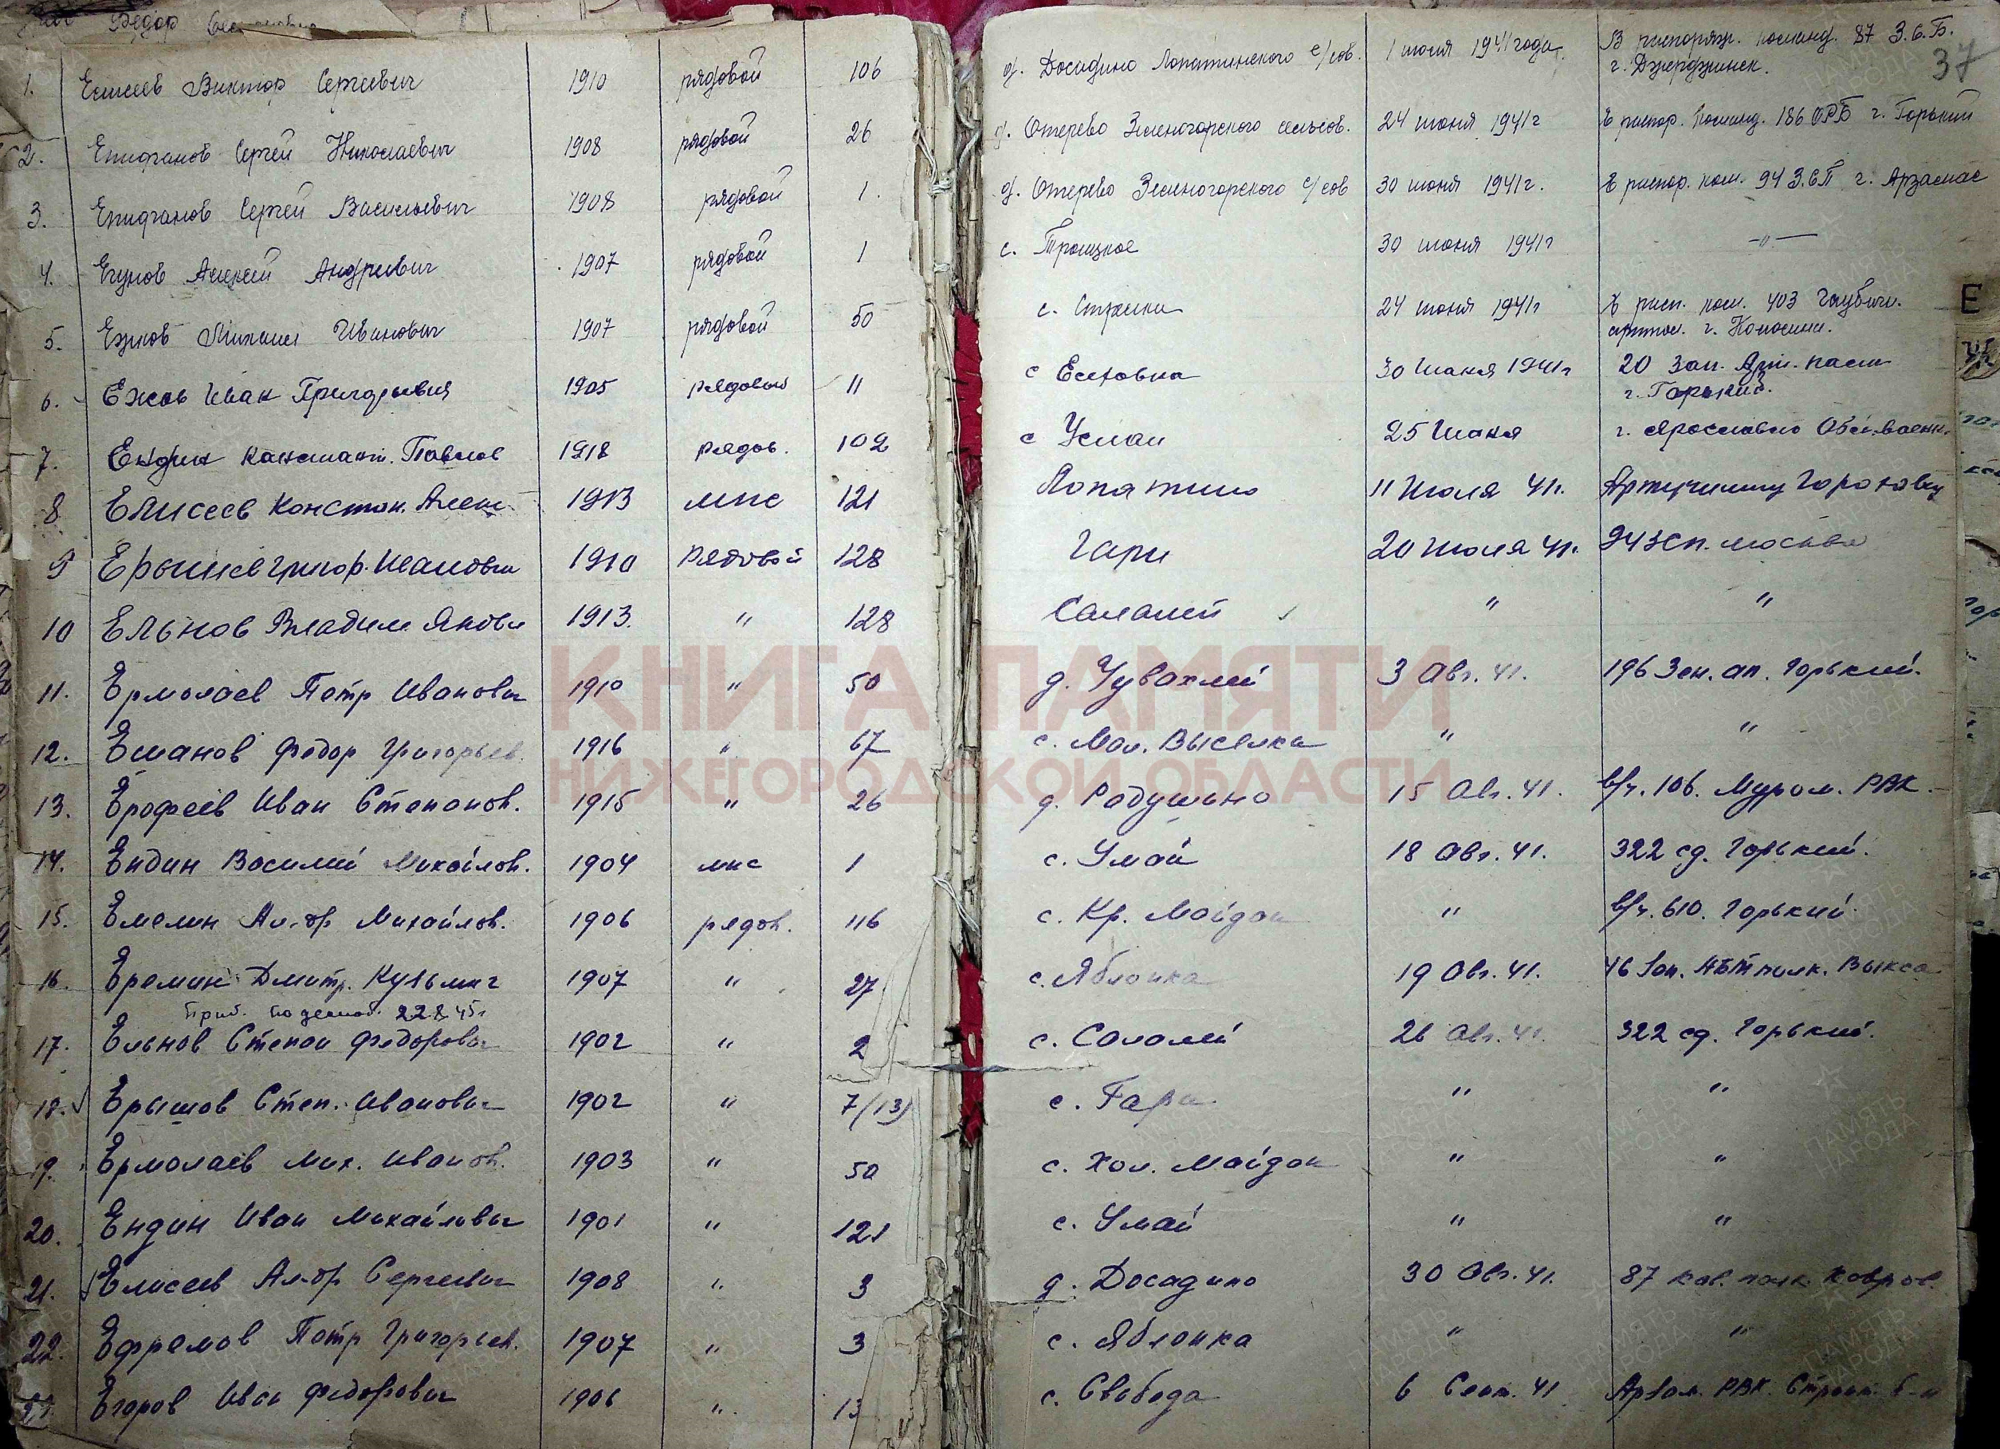 Федор
37
1. Елисеев Виктор Сергеевич 1910 рядовой 106 д. Досадино Лопатинского с/сов. 1 июля 1941 года. В распоряж. команд. 87 З.С.Б.
г. Дзержинск.
2. Епифанов Сергей Николаевич 1908 рядовой 26 д. Отерево Зеленогорского сельсов. 24 июня 1941г В распор. команд. 186 ОРБ г. Горький
3. Епифанов Сергей Васильевич 1908 рядовой 1. д. Отерево Зеленогорского с/сов 30 июня 1941г. В распор. ком. 94 З.С.П г. Арзамас
4. Егунов Алексей Андреевич 1907 рядовой 1 с. Троицкое 30 июня 1941г —„—
5. Ежков Михаил Иванович 1907 рядовой 50 с. Стрелка 24 июня 1941г В расп. ком. 403 Гаубичн.
артпол. г.
Е
6. Ежов Иван Григорьевич 1905 рядовой 11 с Елховка 30 Июня 1941г 20 Зап. Арт. полк
г. Горький.
7. Ендин Констант. Павлов 1918 рядов. 102 с Умай 25 Июня г. Ярославль Обл. военк.
8 Елисеев Констан. Алекс. 1913 мпс 121 Лопатино 11 Июля 41г. Гороховец
9 Ерышев Григор. Иванович 1910 Рядовой 128 Гари 20 Июля 41г. 94 ЗСП. Москва
10 Ельнов Владим Яковл 1913. " 128 Салалей "  "
11. Ермолаев Петр Иванович 1910 " 50 д. Чувахлей 3 Авг. 41. 196 Зен. ап. Горький.
12. Еманов Федор Григорьев. 1916 " 67 с. Мал. Выселки " "
13. Ерофеев Иван Степанов. 1915 " 26 д. Радушино 15 Авг. 41. в/ч. 106. Муром. РВК.
14. Ендин Василий Михайлов. 1904 мпс 1 с. Умай 18 Авг. 41. 322 сд. Горький.
15. Емелин Ал-др Михайлов. 1906 рядов. 116 с. Кр. Майдан " в/ч. 610. Горький.
16. Еремин Дмитр. Кузьмич 1907 " 27 с. Яблонка 19 Авг. 41. 46 Зап. полк. Выкса
Приб. по демоб. 22.8.45г
17. Ельнов Степан Федорович 1902 " 2 с. Салалей 26 Авг. 41. 322 сд. Горький.
18. Ерышов Степ. Иванович 1902 " 7/(13) с. Гари. " "
19. Ермолаев Мих. Иванов. 1903 " 50 с. Хол. Майдан " "
20. Ендин Иван Михайлович 1901 " 121 с. Умай " "
21. Елисеев Ал-др Сергеевич 1908 " 3 д. Досадино 30 Авг. 41. 87 кав. полк Ковров.
22. Ефремов Петр Григорьев. 1907 " 3 с. Яблонка " "
23. Егоров Иван Федорович 1906 " 13 с. Свобода 6 Сент. 41 Арзам. РВК. Строит. б-н
КНИГА ПАМЯТИ
НИЖЕГОРОДСКОЙ ОБЛАСТИ
ПАМЯТЬ
НАРОДА